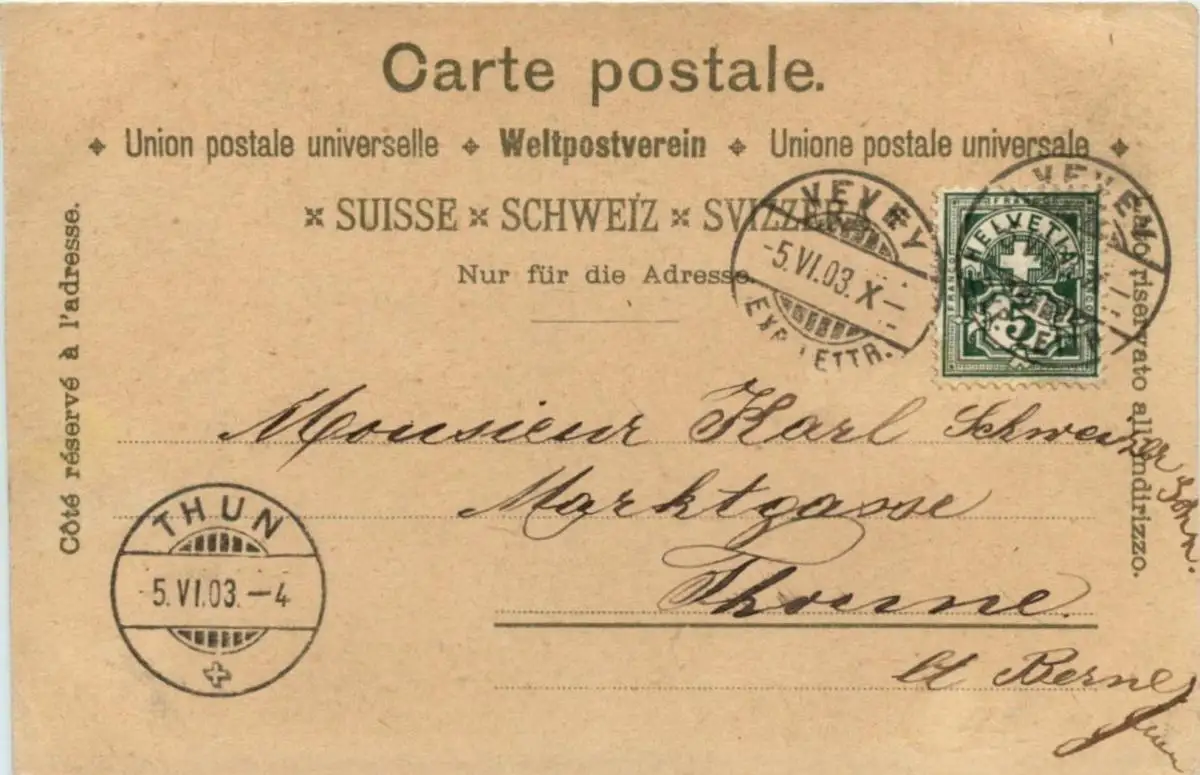 Carte postale.
Union postale universelle Weltpostverein Unione postale universale
SUISSE SCHWEIZ SVIZZERA
Nur für die Adresse.
Côté réservé à l'adresse.
Lato riservato all'indirizzo.
VEVEY
-5.VI.03.X-
EXP. LETTR.
VEVEY
FRANCO
HELVETIA
FRANCO
FRANCO
5
Monsieur Karl Schweizer Sohn.
Marktgasse
Thoune.
Ct Berne
THUN
5.VI.03.-4